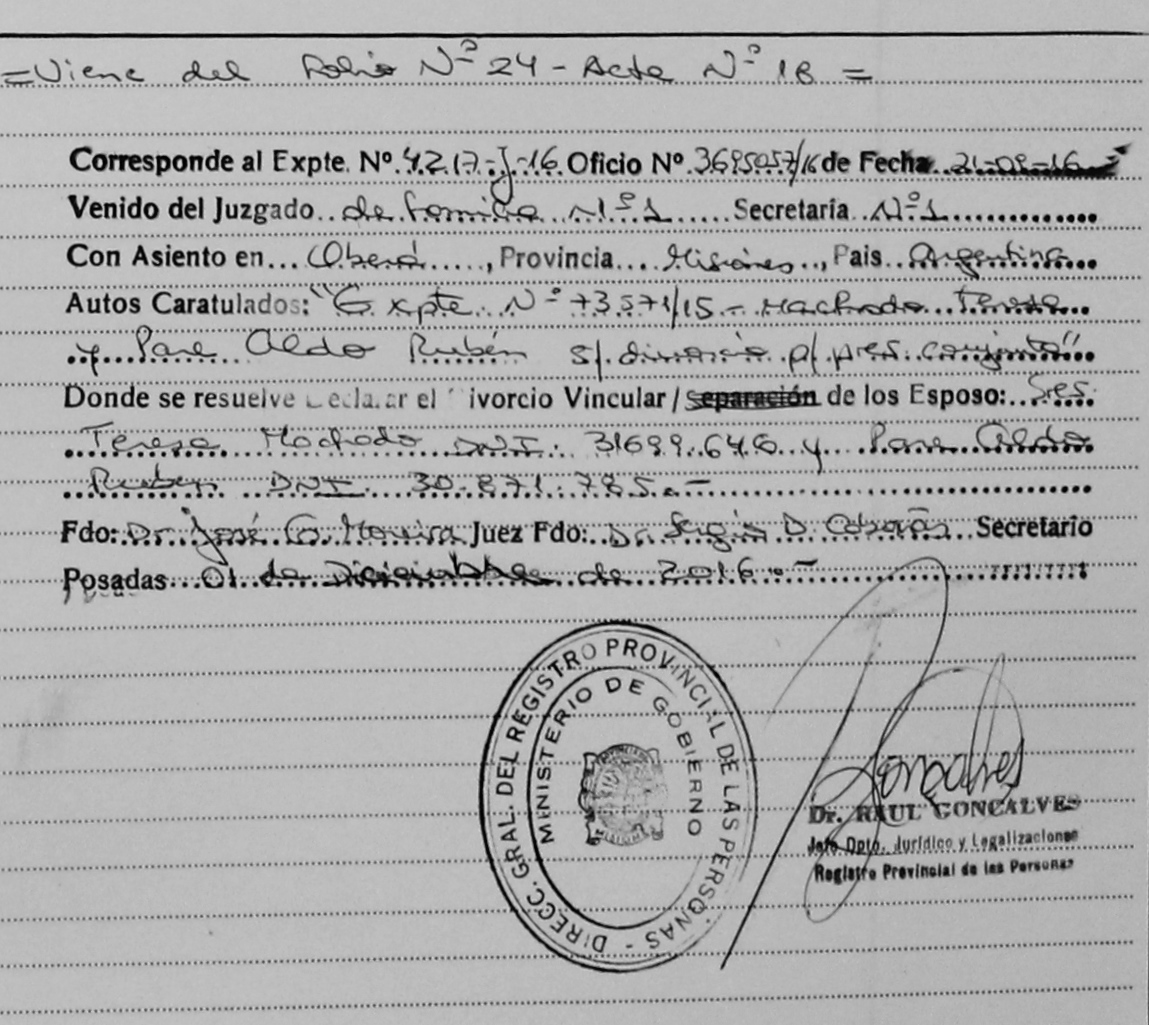 =Viene del Folio Nº 24 - Acta Nº 18 =
Corresponde al Expte. Nº 4217-J-16 Oficio Nº 3695057/16 de Fecha 21-09-16
Venido del Juzgado de Familia Nº1 Secretaría Nº1
Con Asiento en Oberá, Provincia Misiones, Pais Argentina
Autos Caratulados: "Expte Nº 73571/15 - Machado Teresa
y Pane Aldo Rubén s/ divorcio p/ pres. conjunta"
Donde se resuelve Declarar el Divorcio Vincular / Separación de los Esposo: Sres.
Teresa Machado DNI: 31699.646 y Pane Aldo
Ruben DNI 30.871.785.-
Fdo: Dr. José G. Moreira Juez Fdo: Dr. Sergio D. Secretario
Posadas 01 de Diciembre de 2016.-
DIRECC. GRAL. DEL REGISTRO PROVINCIAL DE LAS PERSONAS -
MINISTERIO DE GOBIERNO
Gonçalves
Dr. RAUL GONCALVES
Jefe Dpto. Jurídico y Legalizaciones
Registro Provincial de las Personas